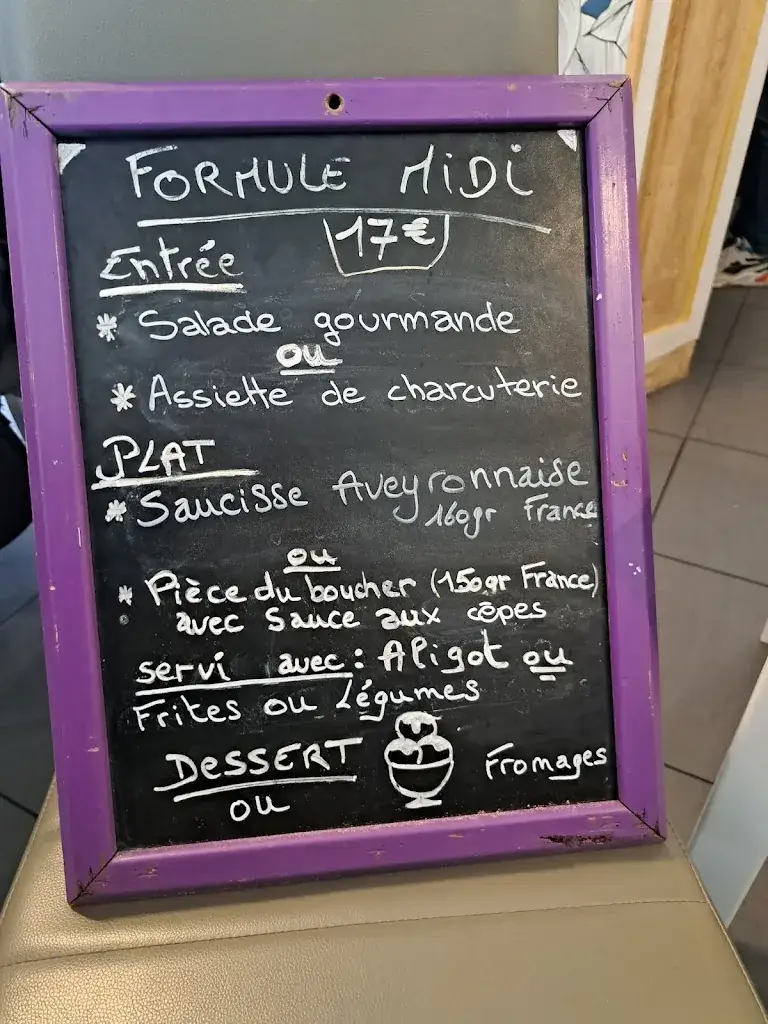 FORMULE MIDI
17€
Entrée
* Salade gourmande
ou
* Assiette de charcuterie
PLAT
* Saucisse Aveyronnaise
160gr France
ou
* Pièce du boucher (150gr France)
avec Sauce aux cèpes
servi avec : Aligot ou
Frites ou Légumes
DESSERT Fromages
ou